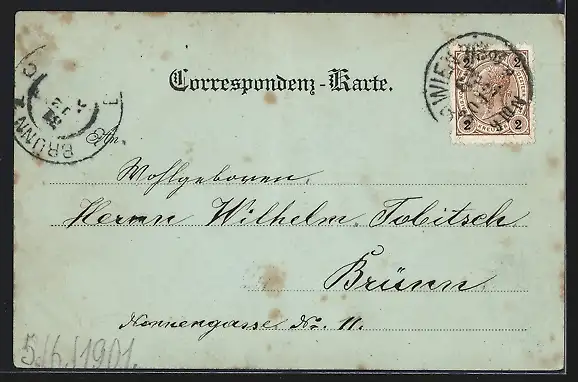 Correspondenz-Karte.
WIEN
2 2
2 2
BRÜNN
An
Wohlgeboren
Herrn Wilhelm Tobitsch
Brünn
Nonnengasse No. 11.
5./6./1901.